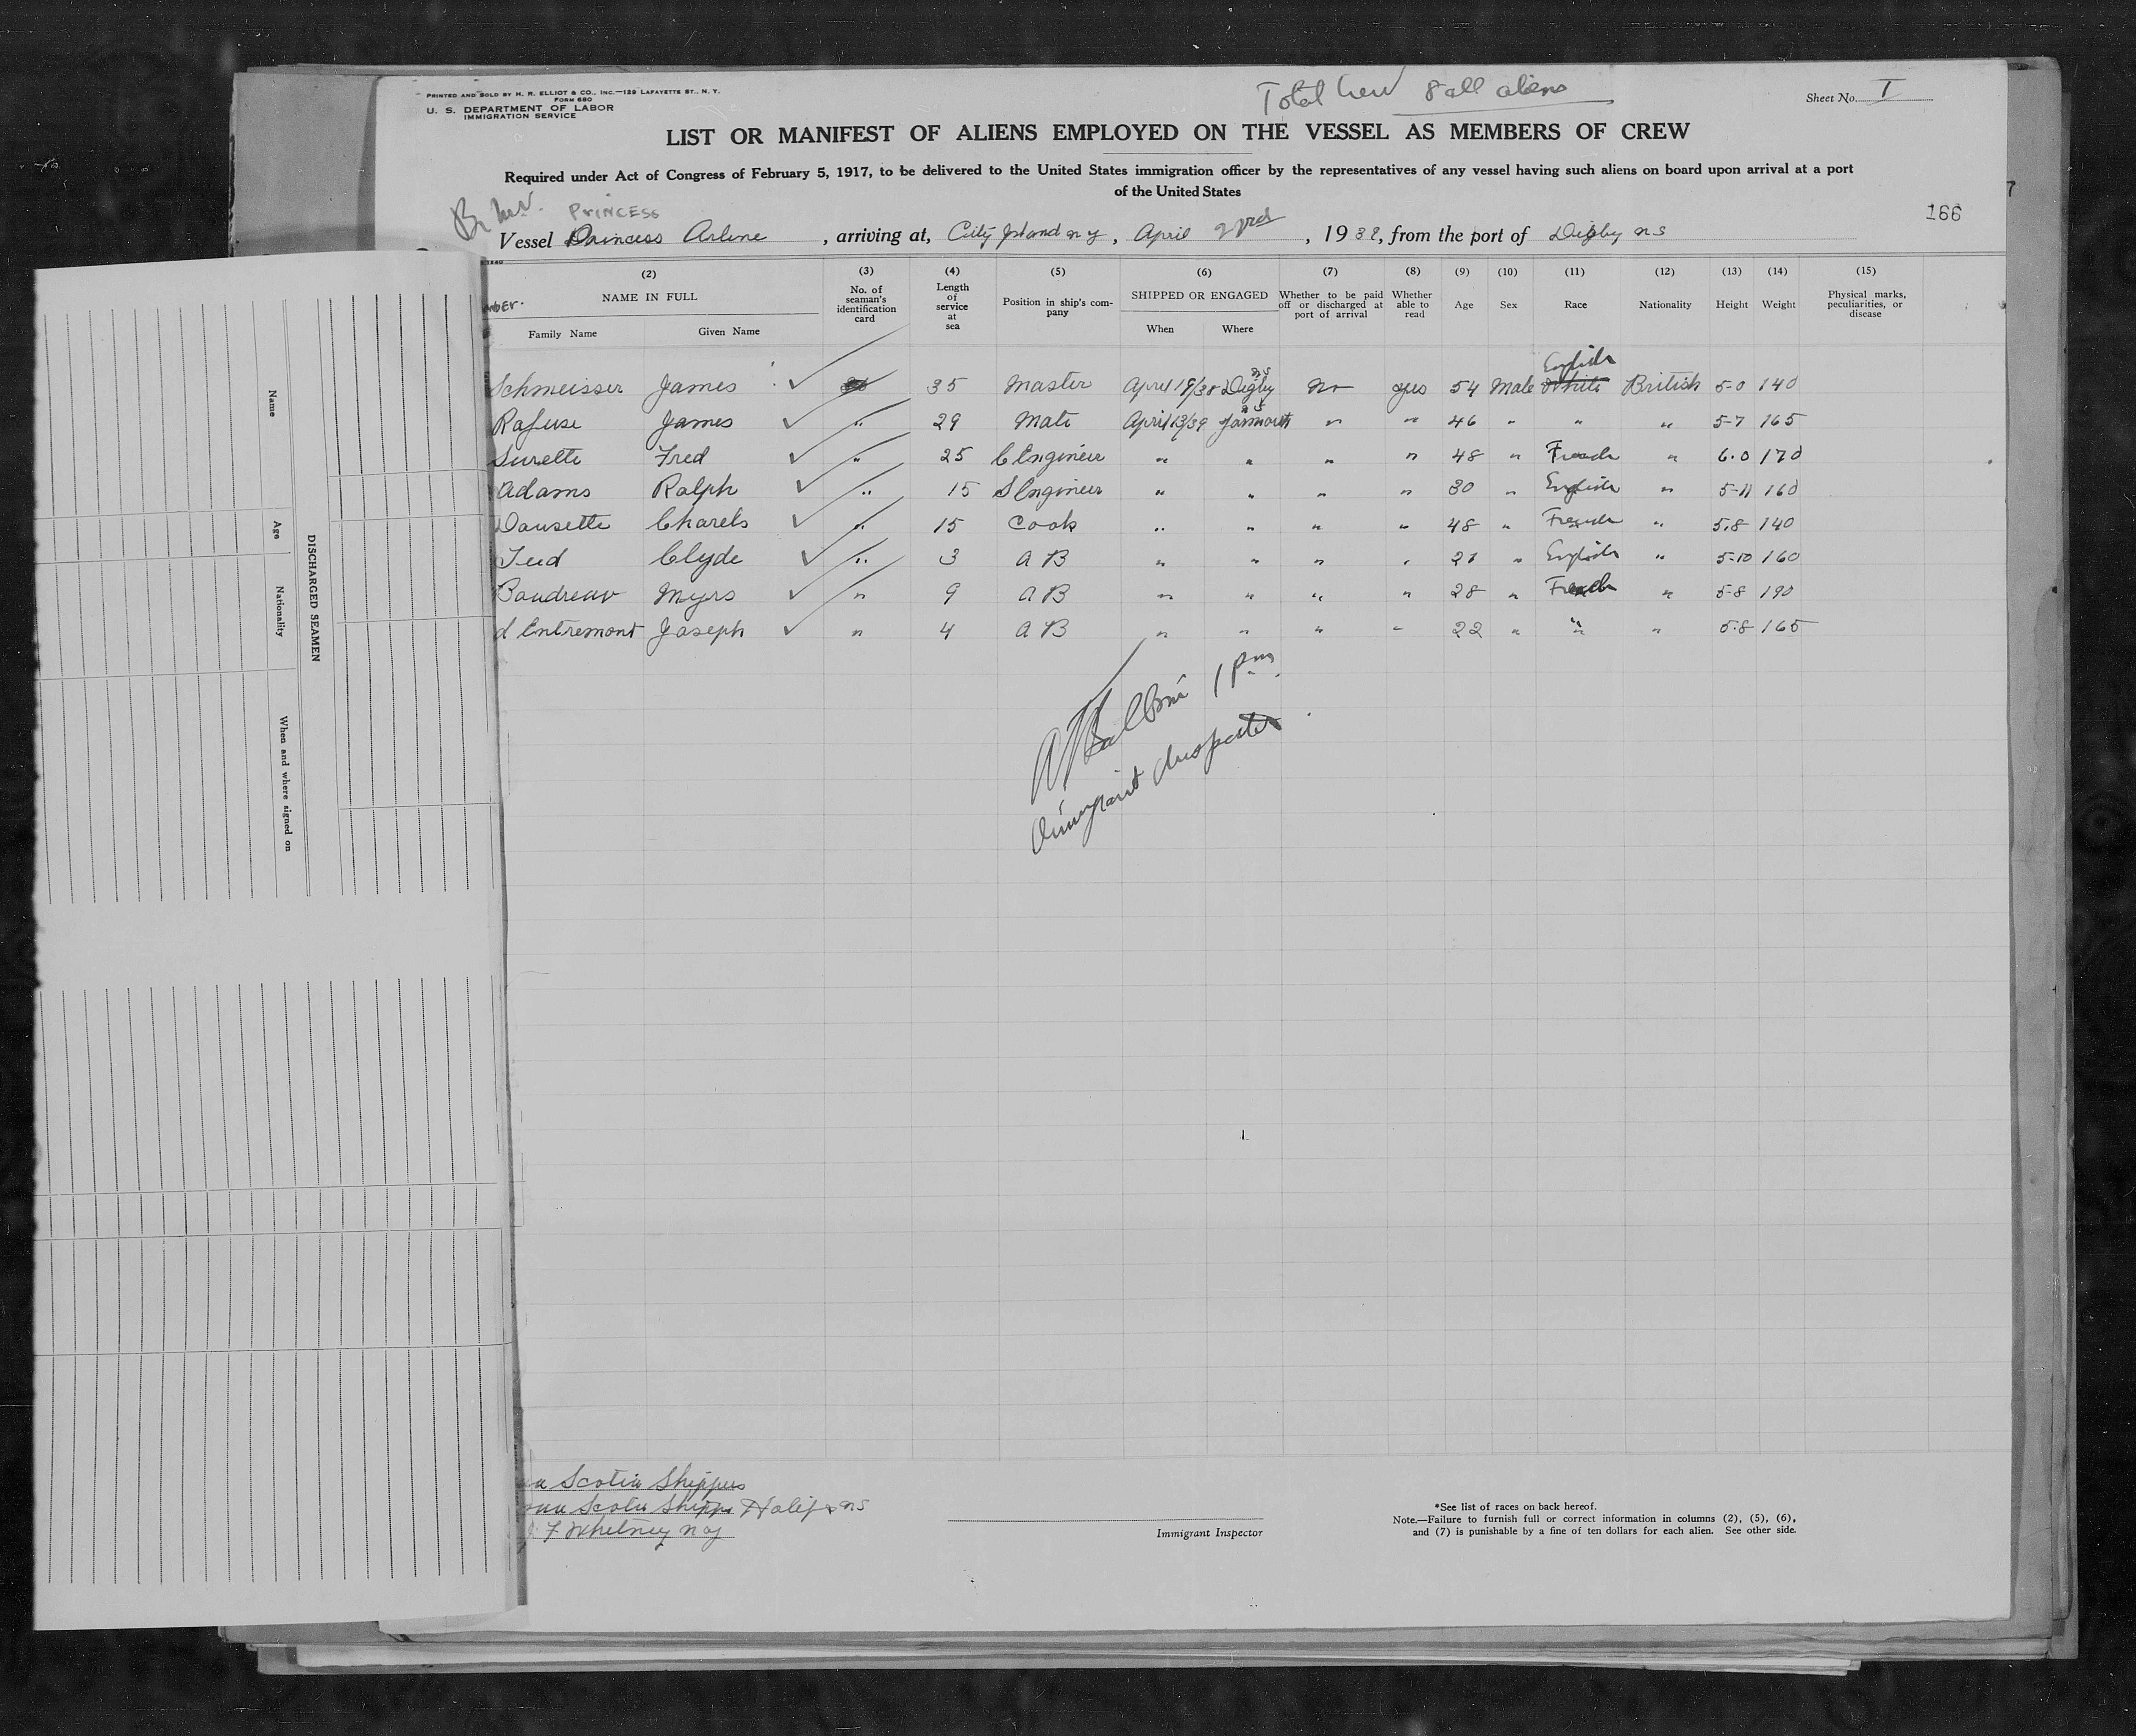 PRINTED AND SOLD BY H. R. ELLIOT & CO., INC.—129 LAFAYETTE ST., N. Y.
FORM 680
U. S. DEPARTMENT OF LABOR
IMMIGRATION SERVICE
Total Crew 8 all aliens
Sheet No. I
LIST OR MANIFEST OF ALIENS EMPLOYED ON THE VESSEL AS MEMBERS OF CREW
Required under Act of Congress of February 5, 1917, to be delivered to the United States immigration officer by the representatives of any vessel having such aliens on board upon arrival at a port
of the United States
166
PRINCESS
Vessel Princess Arlene, arriving at, City Island n y, April 22nd, 1938, from the port of Digby n s
(2) (3) (4) (5) (6) (7) (8) (9) (10) (11) (12) (13) (14) (15)
NAME IN FULL No. of seaman's identification card Length of service at sea Position in ship's company SHIPPED OR ENGAGED Whether to be paid off or discharged at port of arrival Whether able to read Age Sex Race Nationality Height Weight Physical marks, peculiarities, or disease
Family Name Given Name When Where
Schmeisser James ✓ 35 Master April 19/38 Digby ns No yes 54 Male White English British 5-0 140
Rafuse James ✓ " 29 Mate April 13/39 Yarmouth " " 46 " " " 5-7 165
Surette Fred ✓ " 25 C Engineer " " " " 48 " French " 6.0 170
Adams Ralph ✓ " 15 S Engineer " " " " 30 " English " 5-11 160
Dousette Charels ✓ " 15 Cook " " " " 48 " French " 5.8 140
Clyde ✓ " 3 A B " " " " 21 " English " 5-10 160
Boudreau Myrs ✓ " 9 A B " " " " 28 " French " 5-8 190
d Entremont Joseph ✓ " 4 A B " " " " 22 " " " 5.8 165
1 Pm
Immigrant Inspector
DISCHARGED SEAMEN
Name
Age
Nationality
When and where signed on
Scotia Shippers
Scotia Shipps Halifax ns
J. F Whitney n y
Immigrant Inspector
*See list of races on back hereof.
Note.—Failure to furnish full or correct information in columns (2), (5), (6),
and (7) is punishable by a fine of ten dollars for each alien. See other side.